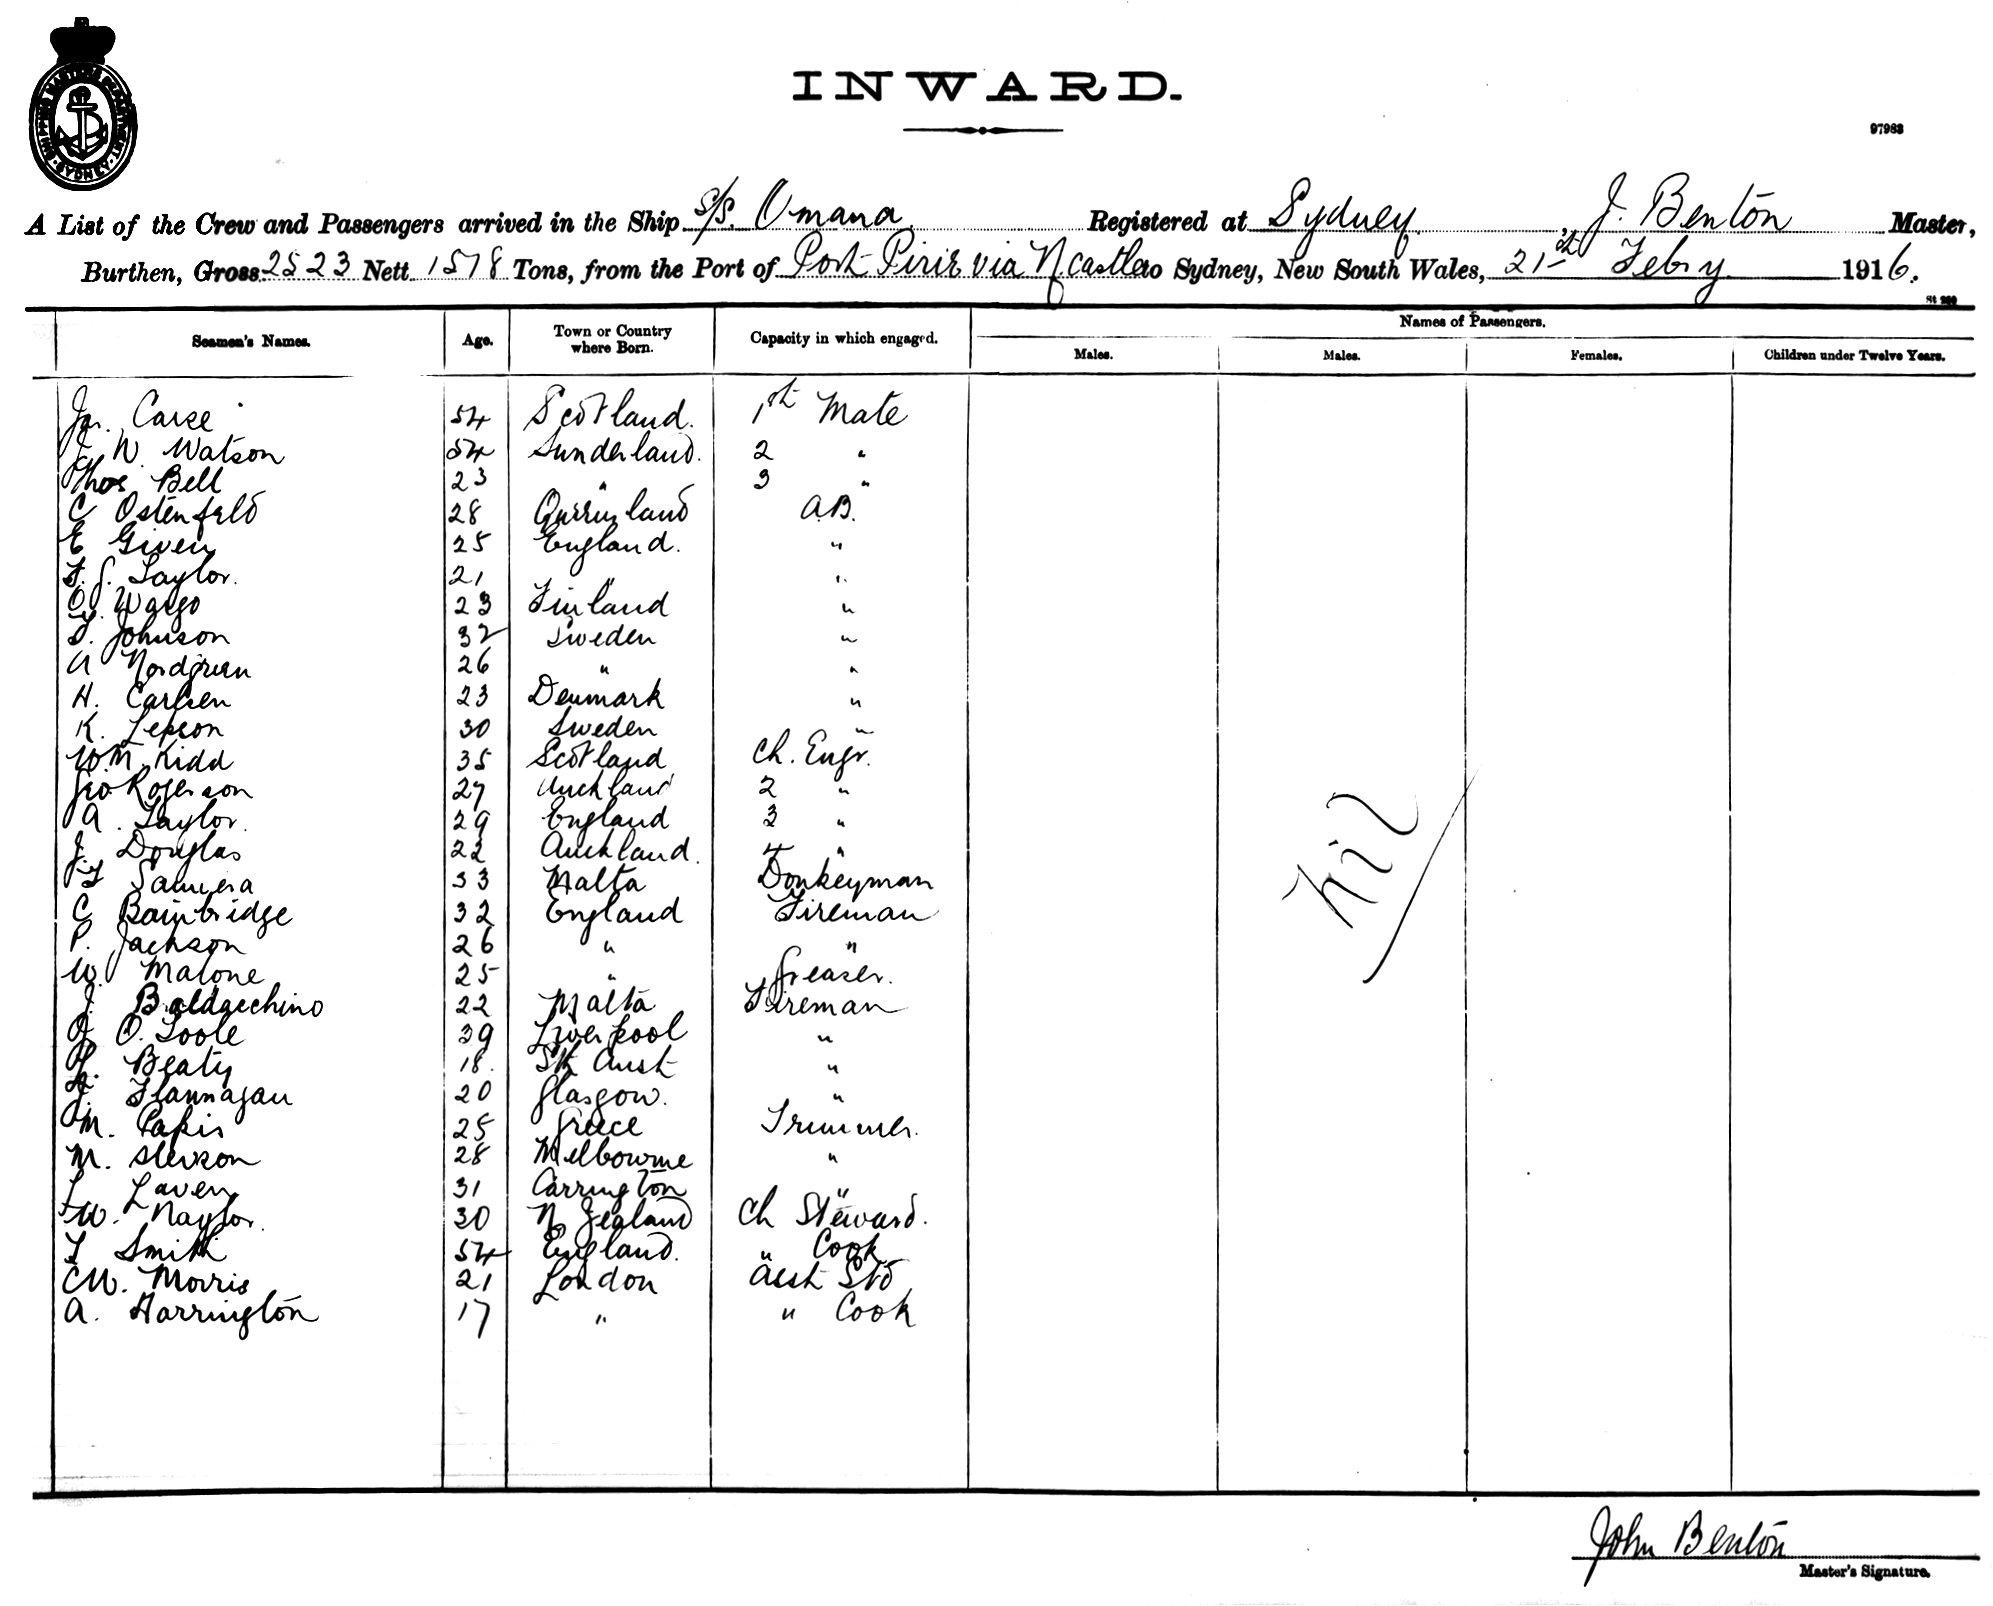 SHIPPING MASTERS DEPARTMENT SYDNEY
INWARD.
97983
A List of the Crew and Passengers arrived in the Ship S/S. Omana Registered at Sydney, J. Benton Master,
Burthen, Gross 2523 Nett 1578 Tons, from the Port of Port Pirie via N.castle to Sydney, New South Wales, 21st Febry 1916.
Seamen's Names. Age. Town or Country where Born. Capacity in which engaged. Names of Passengers.
Males. Males. Females. Children under Twelve Years.
Jas. Carse 54 Scotland. 1st Mate
J W. Watson 54 Sunderland. 2 "
Thos Bell 23 " 3 "
C Ostenfeld 28 Queensland A.B.
E Given 25 England. "
F. J. Taylor. 21 " "
O. Wargo 23 Finland "
F. Johnson 32 Sweden "
A Nordgren 26 " "
H. Carlsen 23 Denmark "
K. Jepson 30 Sweden "
W.M. Kidd 35 Scotland Ch. Engr.
Geo Rogerson 27 Auckland 2 "
A. Taylor. 29 England 3 "
J. Douglas 22 Auckland. 4 "
33 Malta Donkeyman
C Bainbridge 32 England Fireman
P. Jackson 26 " "
W. Malone 25 " Greaser.
J. Baldacchino 22 Malta Fireman
J. O.Toole 39 Liverpool "
H. Beaty 18. Sth Aust "
J. Flannagan 20 Glasgow. "
M. Papis 25 Greece Trimmer.
M. 28 Melbourne "
L Laven 31 Carrington "
W. Naylor. 30 N. Zealand Ch Steward.
F Smith 54 England. " Cook
C W. Morris 21 London Asst Std
A. Harrington 17 " " Cook
nil
John Benton
Master's Signature.